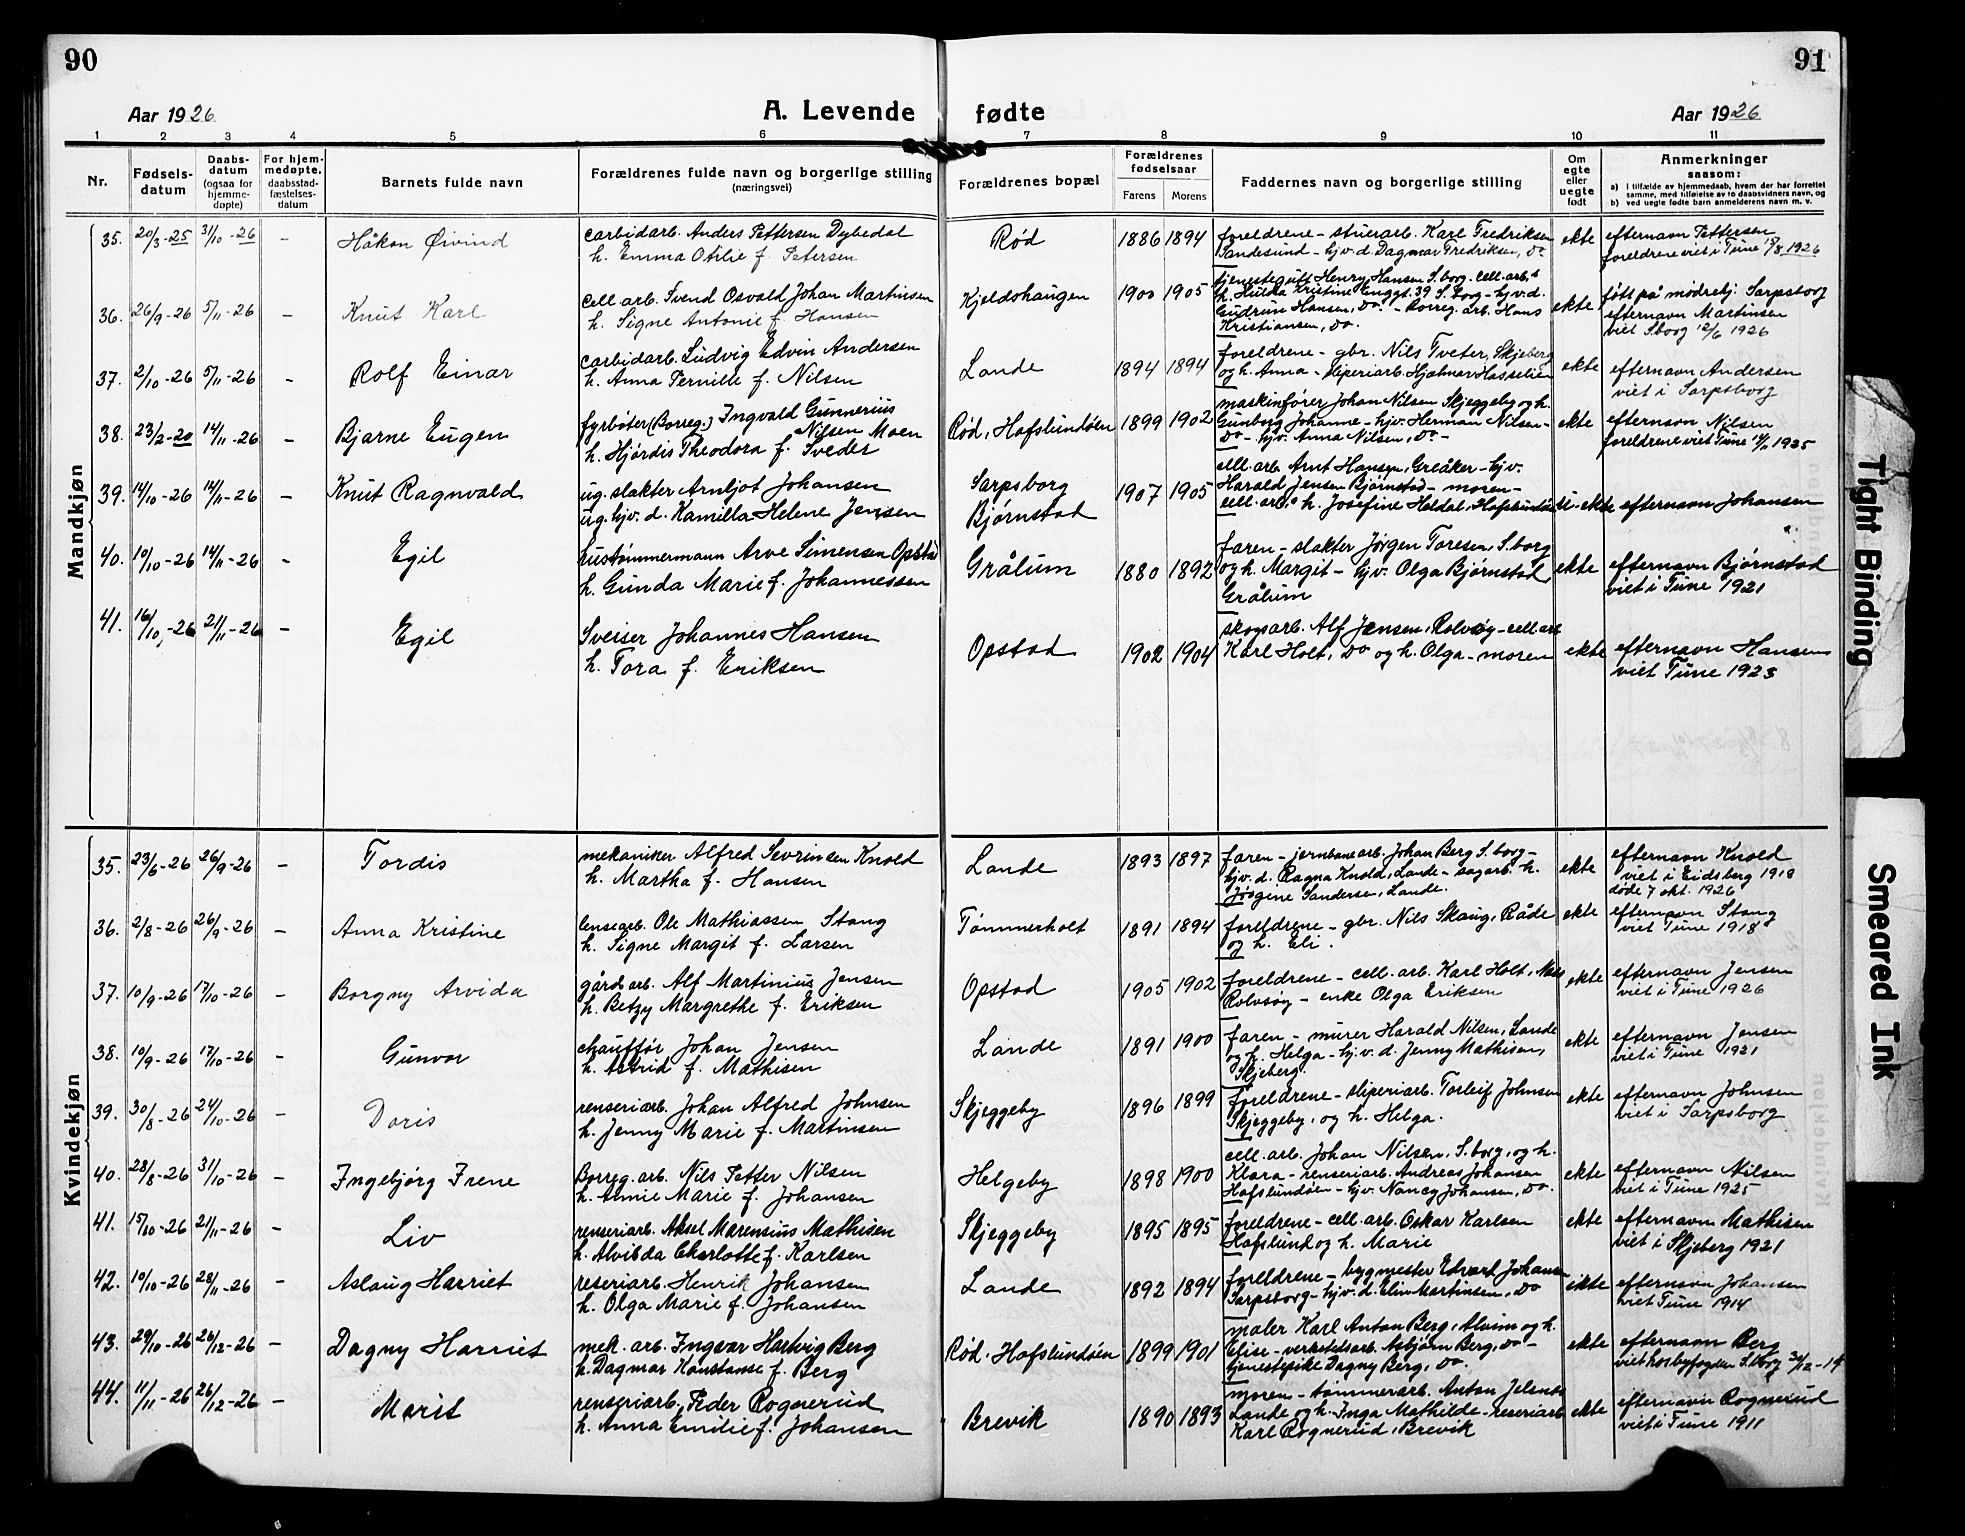 90
91
Aar 1926
A. Levende fødte
Aar 1926
1 2 3 4 5 6 7 8 9 10 11
Nr.
Fødsels-
datum
Daabs-
datum
(ogsaa for
hjemme-
døpte)
For hjem-
medøpte,
daabsstad-
fæstelses-
datum
Barnets fulde navn
Forældrenes fulde navn og borgerlige stilling
(næringsvei)
Forældrenes bopæl
Forældrenes
fødselsaar
Farens Morens
Faddernes navn og borgerlige stilling
Om
egte
eller
uegte
født
Anmerkninger
saasom:
a) i tilfælde av hjemmedaab, hvem der har forrettet
samme, med tilføielse av to daabsvidners navn, og
b) ved uegte fødte barn anmelderens navn m. v.
Mandkjøn
35. 20/3-25 31/10-26 – Håkon Øivind
carbidarb. Anders Pettersen Dybedal
h. Emma Otilie f. Petersen
Rød 1886 1894
foreldrene – stuerarb. Karl Fredriksen
Sandesund – hjv. d. Dagmar Fredriksen, do
ekte
efternavn Pettersen
foreldrene viet i Tune 1926
36. 26/9-26 5/11-26 – Knut Karl
cell. arb. Svend Osvald Johan Martinsen
h. Signe Antonie f. Hansen
Kjeldohaugen 1900 1905
tjenestegutt Henry Hansen S.borg – cell. arb.s
h. Hulda Kristine Enggt. 39 S.borg – hjv. d.
Gudrun Hansen, do. – Borreg. arb. Hans
Kristiansen, do.
ekte
født på mødrehj. Sarpsborg
efternavn Martinsen
viet S.borg 12/6 1926
37. 2/10-26 5/11-26 – Rolf Einar
carbidarb. Ludvig Edvin Andersen
h. Anna Pernille f. Nilsen
Lande 1894 1894
foreldrene – gbr. Nils Tveter, Skjeberg
og h. Anna – sliperiarb. Hjalmar Hasselien
ekte
efternavn Andersen
viet i Sarpsborg
38. 23/2-20 14/11-26 – Bjarne Eugen
fyrbøter (Borreg.) Ingvald Gunnerius
Nilsen Moen
h. Hjørdis Theodora f. Sveder
Rød, Hafslundsøen 1899 1902
maskinfører Johan Nilsen Skjeggeby og h.
Gunborg Johanne – hjv. Herman Nilsen –
do – hjv. Anna Nilsen, do –
ekte
efternavn Nilsen
foreldrene viet Tune 1925
39. 14/10-26 14/11-26 – Knut Ragnvald
ug. slakter Arnljot Johansen
ug. hjv. d. Kamilla Helene Jensen
Sarpsborg
Bjørnstad
1907 1905
cell. arb. Arnt Hansen, Greåker – hjv.
Harald Jensen Bjørnstad – moren –
cell. arb.s h. Josefine Heldal, Hafslundsøen
u-ekte
efternavn Johansen
40. 10/10-26 14/11-26 – Egil
hustømmermann Arve Simensen Opstad
h. Gunda Marie f. Johannessen
Grålum 1880 1892
faren – slakter Jørgen Toresen, S.borg
og h. Margit – hjv. Olga Bjørnstad
Grålum
ekte
efternavn Bjørnstad
viet i Tune 1921
41. 16/10-26 21/11-26 – Egil
Sveiser Johannes Hansen
h. Tora f. Eriksen
Opstad 1902 1904
skogsarb. Alf Jensen, Rolvsøy – cell. arb
Karl Holt, do og h. Olga – moren
ekte
efternavn Hansen
viet Tune 1923
Kvindekjøn
35. 23/6-26 26/9-26 – Tordis
mekaniker Alfred Sevrinsen Knold
h. Martha f. Hansen
Lande 1893 1897
faren – jernbanearb. Johan Berg S.borg –
hjv. d. Ragna Knold, Lande – sagarb. h.
Jørgine Sandersen, Lande.
ekte
efternavn Knold
viet i Eidsberg 1918
døde 7 okt. 1926
36. 2/8-26 26/9-26 – Anna Kristine
lensearb. Ole Mathiassen Stang
h. Signe Margit f. Larsen
Tømmerholt 1891 1894
foreldrene – gbr. Nils Skaug, Råde
og h. Eli.
ekte
efternavn Stang
viet Tune 1918
37. 10/9-26 17/10-26 – Borgny Arvida
gårdsarb. Alf Martinius Jensen
h. Betzy Margrethe f. Eriksen
Opstad 1905 1902
foreldrene – cell. arb. Karl Holt, Nes
Rolvsøy – enke Olga Eriksen
ekte
efternavn Jensen
viet i Tune 1926
38. 10/9-26 17/10-26 – Gunvor
chauffør Johan Jensen
h. Astrid f. Mathisen
Lande 1891 1900
faren – murer Harald Nilsen, Lande
og h. Helga – hjv. d. Jenny Mathisen,
Skjeberg.
ekte
efternavn Jensen
viet i Tune 1921
39. 30/8-26 24/10-26 – Doris
renseriarb. Johan Alfred Johnsen
h. Jenny Marie f. Martinsen
Skjeggeby 1896 1899
foreldrene – sliperiarb. Torleif Johnsen
Skjeggeby, og h. Helga.
ekte
efternavn Johnsen
viet i Sarpsborg
40. 28/8-26 31/10-26 – Ingebjørg Irene
Borreg. arb. Nils Petter Nilsen
h. Annie Marie f. Johansen
Helgeby 1898 1900
cell. arb. Johan Nilsen, S.borg, og h.
Klara – renseriarb. Andreas Johansen
Hafslundsøen – hjv. Nancy Johansen, do.
ekte
efternavn Nilsen
viet i Tune 1925
41. 15/10-26 21/11-26 – Liv
renseriarb. Aksel Marensius Mathisen
h. Alvilda Charlotte f. Karlsen
Skjeggeby 1895 1895
foreldrene – cell. arb. Oskar Karlsen
Hafslund og h. Marie
ekte
efternavn Mathisen
viet i Skjeberg 1921
42. 10/10-26 28/11-26 – Aslaug Harriet
reseriarb. Henrik Johansen
h. Olga Marie f. Johansen
Lande 1892 1894
foreldrene – bygmester Edvard Johansen
Sarpsborg – hjv. d. Elin Martinsen, do
ekte
efternavn Johansen
viet Tune 1914
43. 29/10-26 26/12-26 – Dagny Harriet
mek. arb. Ingvar Hartvig Berg
h. Dagmar Konstanse f. Berg
Rød. Hafslundsøen 1899 1901
maler Karl Anton Berg, Alvim og h.
Elise – verkstedsarb. Asbjørn Berg, do –
tjenestepike Dagny Berg, do.
ekte
efternavn Berg
viet hos byfogden S.borg
44. 11/11-26 26/12-26 – Marit
renseriarb. Peder Rognerud
h. Anna Emilie f. Johansen
Brevik 1890 1893
moren – tømmerarb. Anton Jelsnes
Lande og h. Inga Mathilde – reseriarb
Karl Rognerud, Brevik
ekte
efternavn Rognerud
viet i Tune 1911
Tight Binding
Smeared Ink